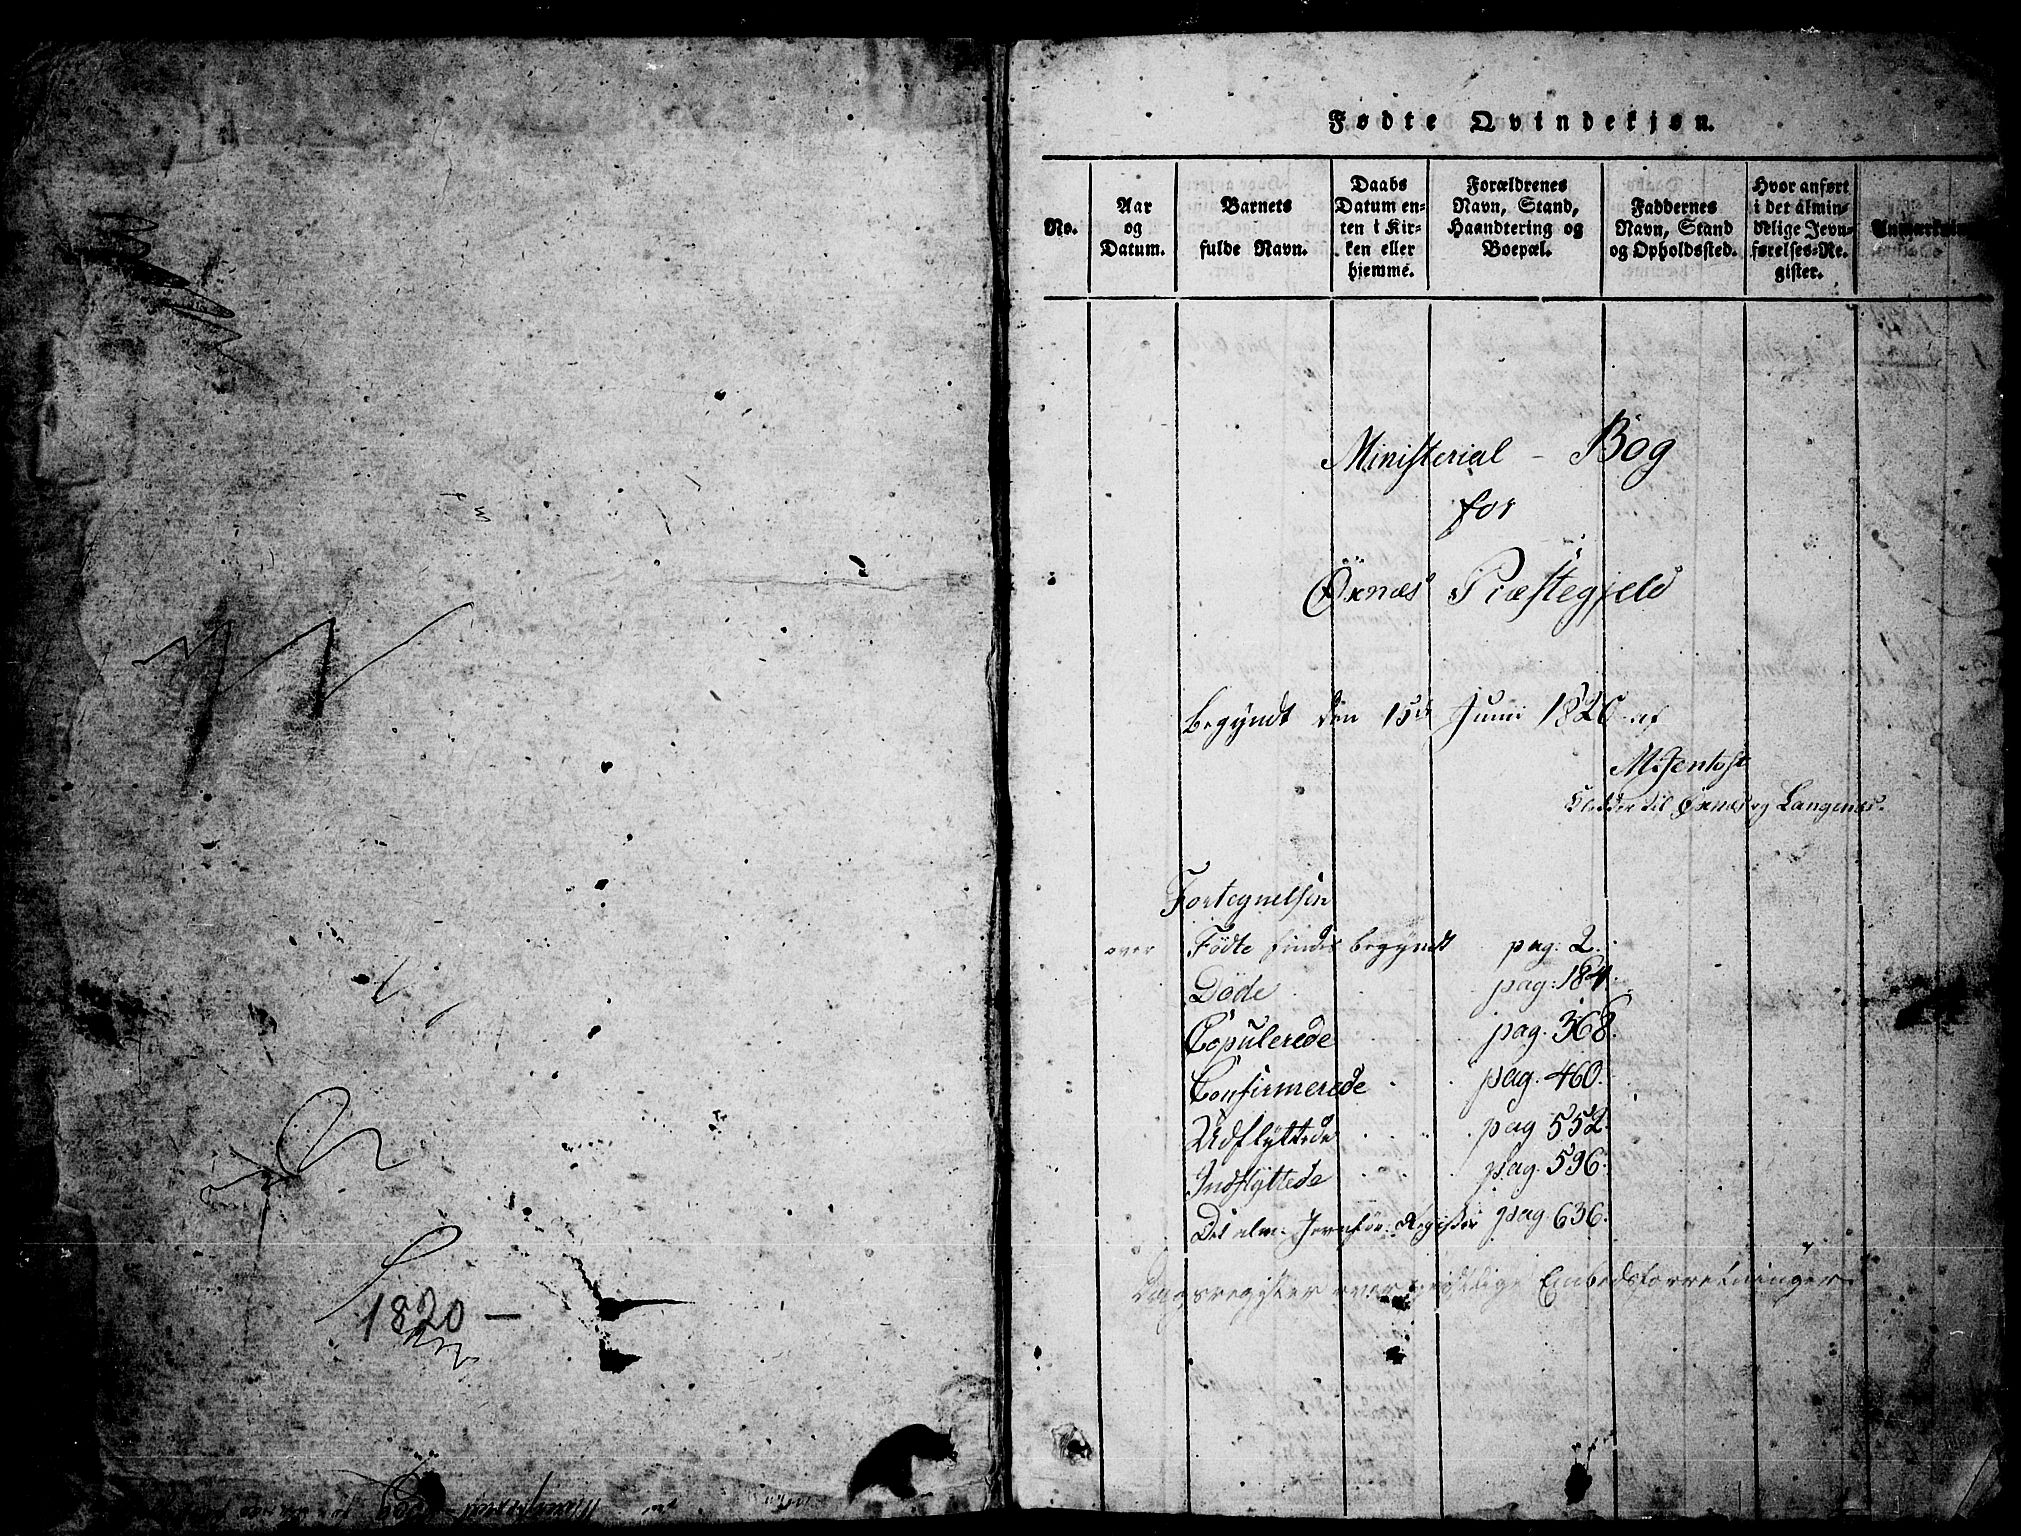 1820 —
Fødte Qvindekjøn.
No.
Aar
og
Datum.
Barnets
fulde Navn.
Daabs
Datum en-
ten i Kir-
ken eller
hjemme.
Forældrenes
Navn, Stand,
Haandtering og
Boepæl.
Faddernes
Navn, Stand
og Opholdssted.
Hvor anført
i det almin-
delige Jevn-
førelses-Re-
gister.
Ministerial - Bog
for
Öxnæs Præstegjeld
begyndt den 15de Junii 1820 af
M. Jentoft
Klokker til Öxnes og Langenes.
Fortegnelsen
over Födte findes begyndt pag: 2.
Döde pag: 184.
Copulerede pag. 368.
Confirmerede pag. 460.
Udflyttede pag 552.
Indflyttede pag. 596.
Det alm: Jevnför: Register pag 636.
Dagsregister over geistlige Embedsforretninger